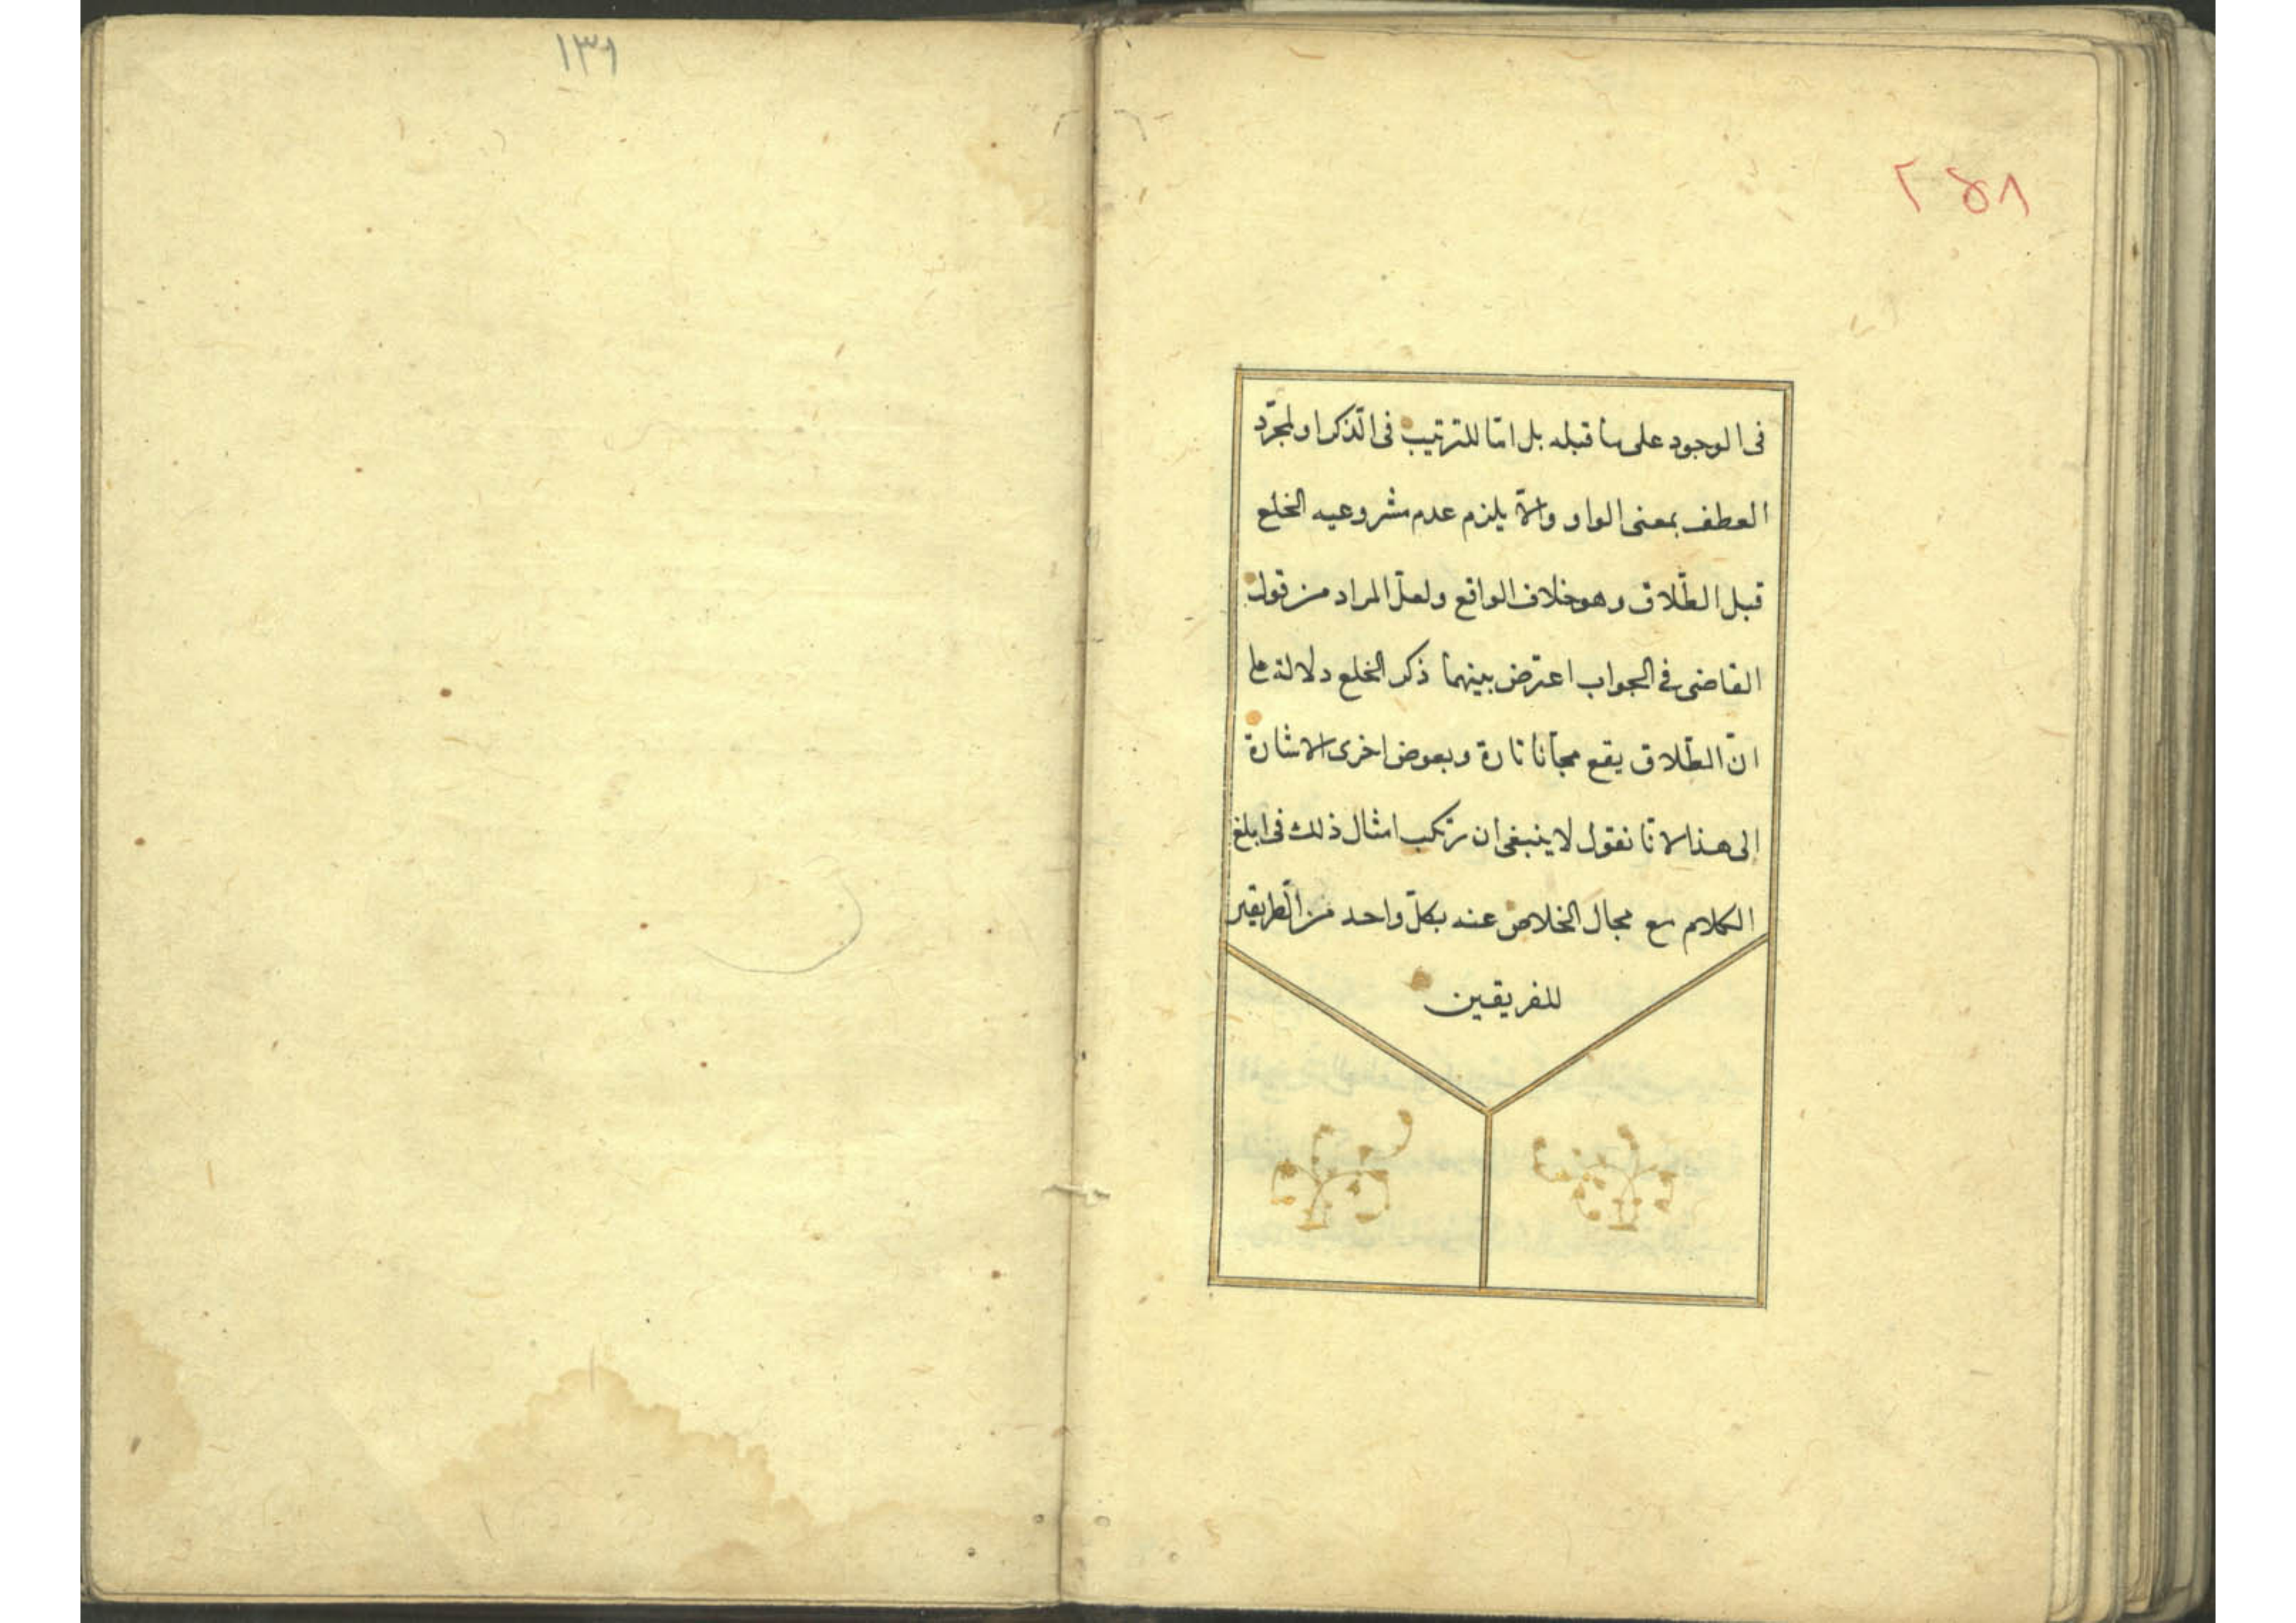 ٢٥٨
فى الوجود على ما قبله بل امّا للترتيب فى الذّكر او لمجرّد
العطف بمعنى الواو والاّ يلزم عدم مشروعيه الخلع
قبل الطّلاق وهو خلاف الواقع ولعلّ المراد من قول
القاضى فى الجواب اعترض بينهما ذكر الخلع دلالة على
انّ الطّلاق يقع مجّانا تارة وبعوض اخرى الاشارة
الى هذا لانّا نقول لا ينبغى ان يرتكب امثال ذلك فى ابلغ
الكلام مع مجال الخلاص عنه بكلّ واحد من الطّريقين
للفريقين
١٣١